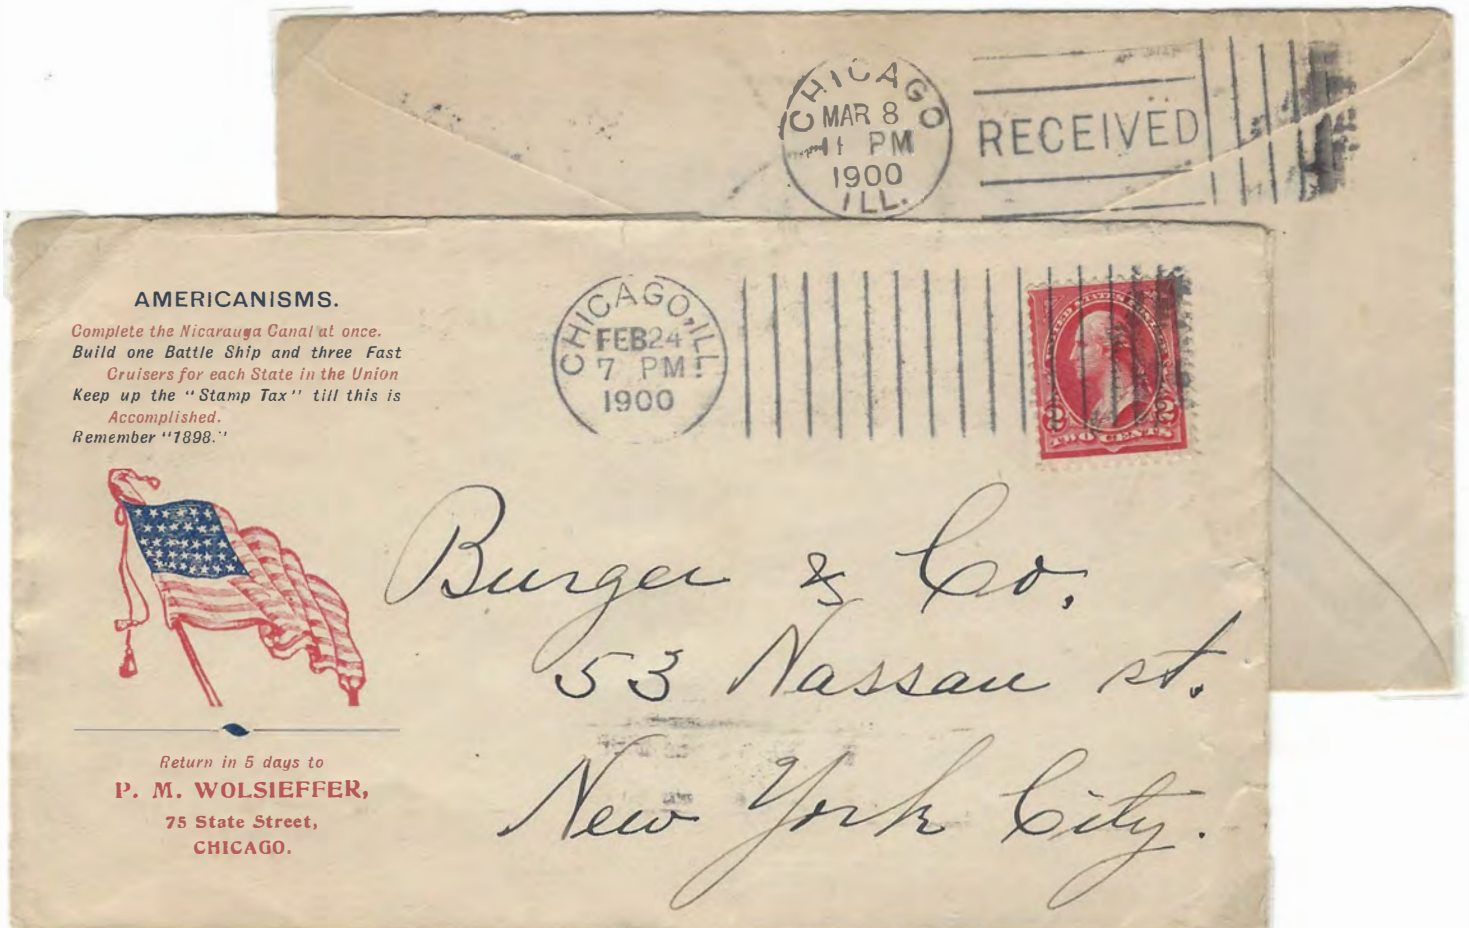 CHICAGO
MAR 8
11 PM
1900
ILL.
RECEIVED
AMERICANISMS.
Complete the Nicarauga Canal at once.
Build one Battle Ship and three Fast
Cruisers for each State in the Union
Keep up the "Stamp Tax" till this is
Accomplished.
Remember "1898."
CHICAGO, ILL.
FEB 24
7 PM
1900
UNITED STATES POSTAGE
2 2
TWO CENTS
Burger & Co.
53 Nassau st.
New York City.
Return in 5 days to
P. M. WOLSIEFFER,
75 State Street,
CHICAGO.